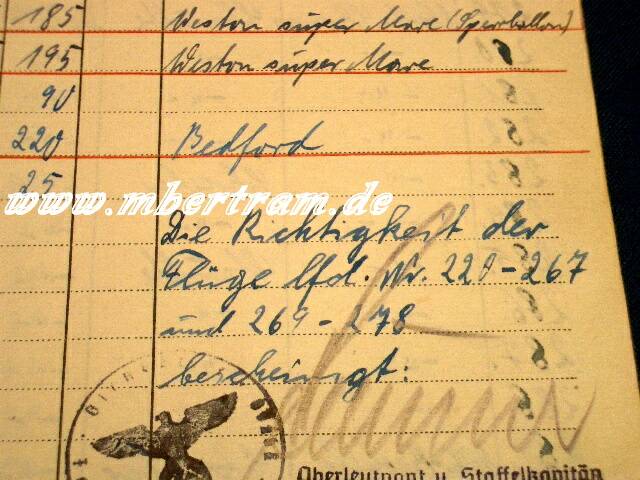 185 Weston super Mare (Sperrballon)
195 Weston super Mare
90
220 Bedford
25
www.mbertram.de
Die Richtigkeit der
Flüge lfd. Nr. 220-267
und 269-278
bescheinigt:
Oberleutnant u. Staffelkapitän